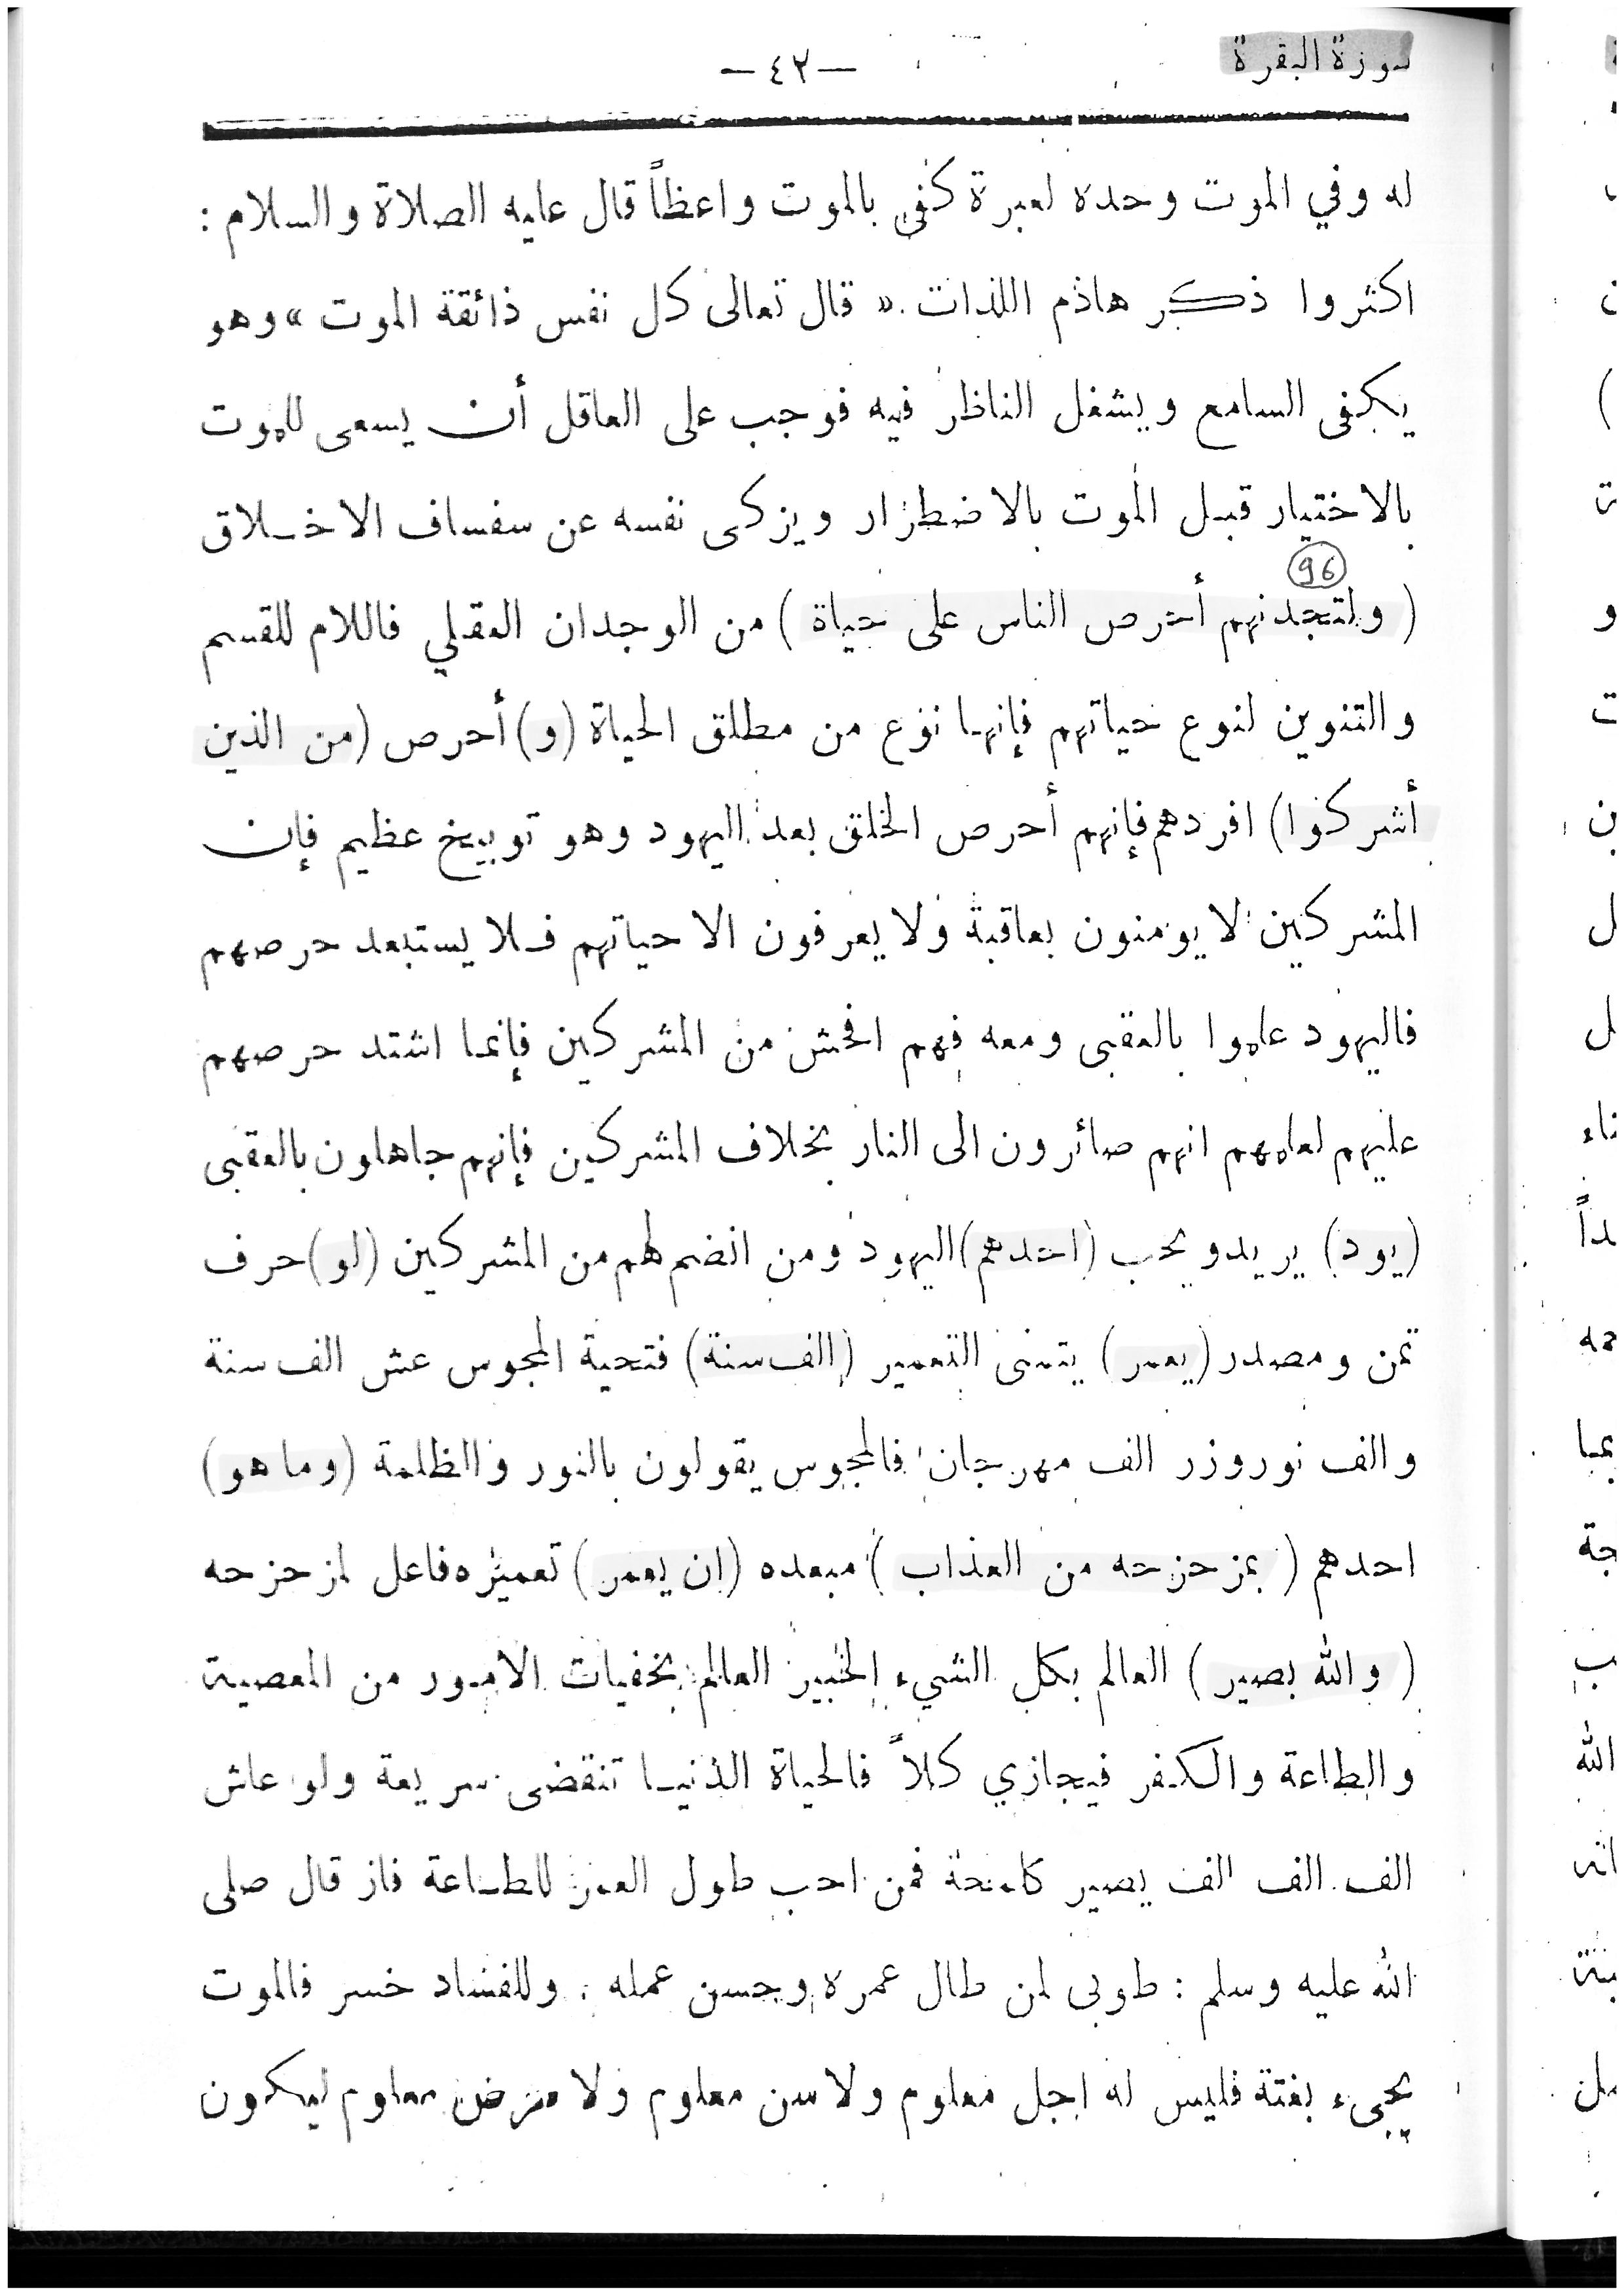 سورة البقرة
— ٤٢ —
له وفي الموت وحده لعبرة كفى بالموت واعظاً قال عليه الصلاة والسلام :
اكثروا ذكر هاذم اللذات . « قال تعالى كل نفس ذائقة الموت » وهو
يكفى السامع ويشغل الناظر فيه فوجب على العاقل أن يسعى للموت
بالاختيار قبل الموت بالاضطرار ويزكى نفسه عن سفساف الاخلاق
96
( ولتجدنهم أحرص الناس على حياة ) من الوجدان العقلي فاللام للقسم
والتنوين لنوع حياتهم فإنها نوع من مطلق الحياة (و) أحرص (من الذين
أشركوا) افردهم فإنهم أحرص الخلق بعد اليهود وهو توبيخ عظيم فإن
المشركين لا يومنون بعاقبة ولا يعرفون الا حياتهم فلا يستبعد حرصهم
فاليهود علموا بالعقبى ومعه فهم افحش من المشركين فإنما اشتد حرصهم
عليهم لعلمهم انهم صائرون الى النار بخلاف المشركين فإنهم جاهلون بالعقبى
(يود) يريد ويحب (احدهم) اليهود ومن انضم لهم من المشركين (لو) حرف
تمن ومصدر (يعمر) يتمنى التعمير (الف سنة) فتحية المجوس عش الف سنة
والف نوروزر الف مهرجان فالمجوس يقولون بالنور والظلمة (وما هو)
احدهم ( بمزحزحه من العذاب ) مبعده (ان يعمر) تعميره فاعل لمزحزحه
( والله بصير ) العالم بكل الشيء الخبير العالم بخفيات الامور من المعصية
والطاعة والكفر فيجازي كلاً فالحياة الدنيا تنقضى سريعة ولو عاش
الف الف الف يصير كلمحة فمن احب طول العمر للطاعة فاز قال صلى
الله عليه وسلم : طوبى لمن طال عمره وحسن عمله . وللفساد خسر فالموت
يجيء بغتة فليس له اجل معلوم ولا سن معلوم ولا مرض معلوم ليكون